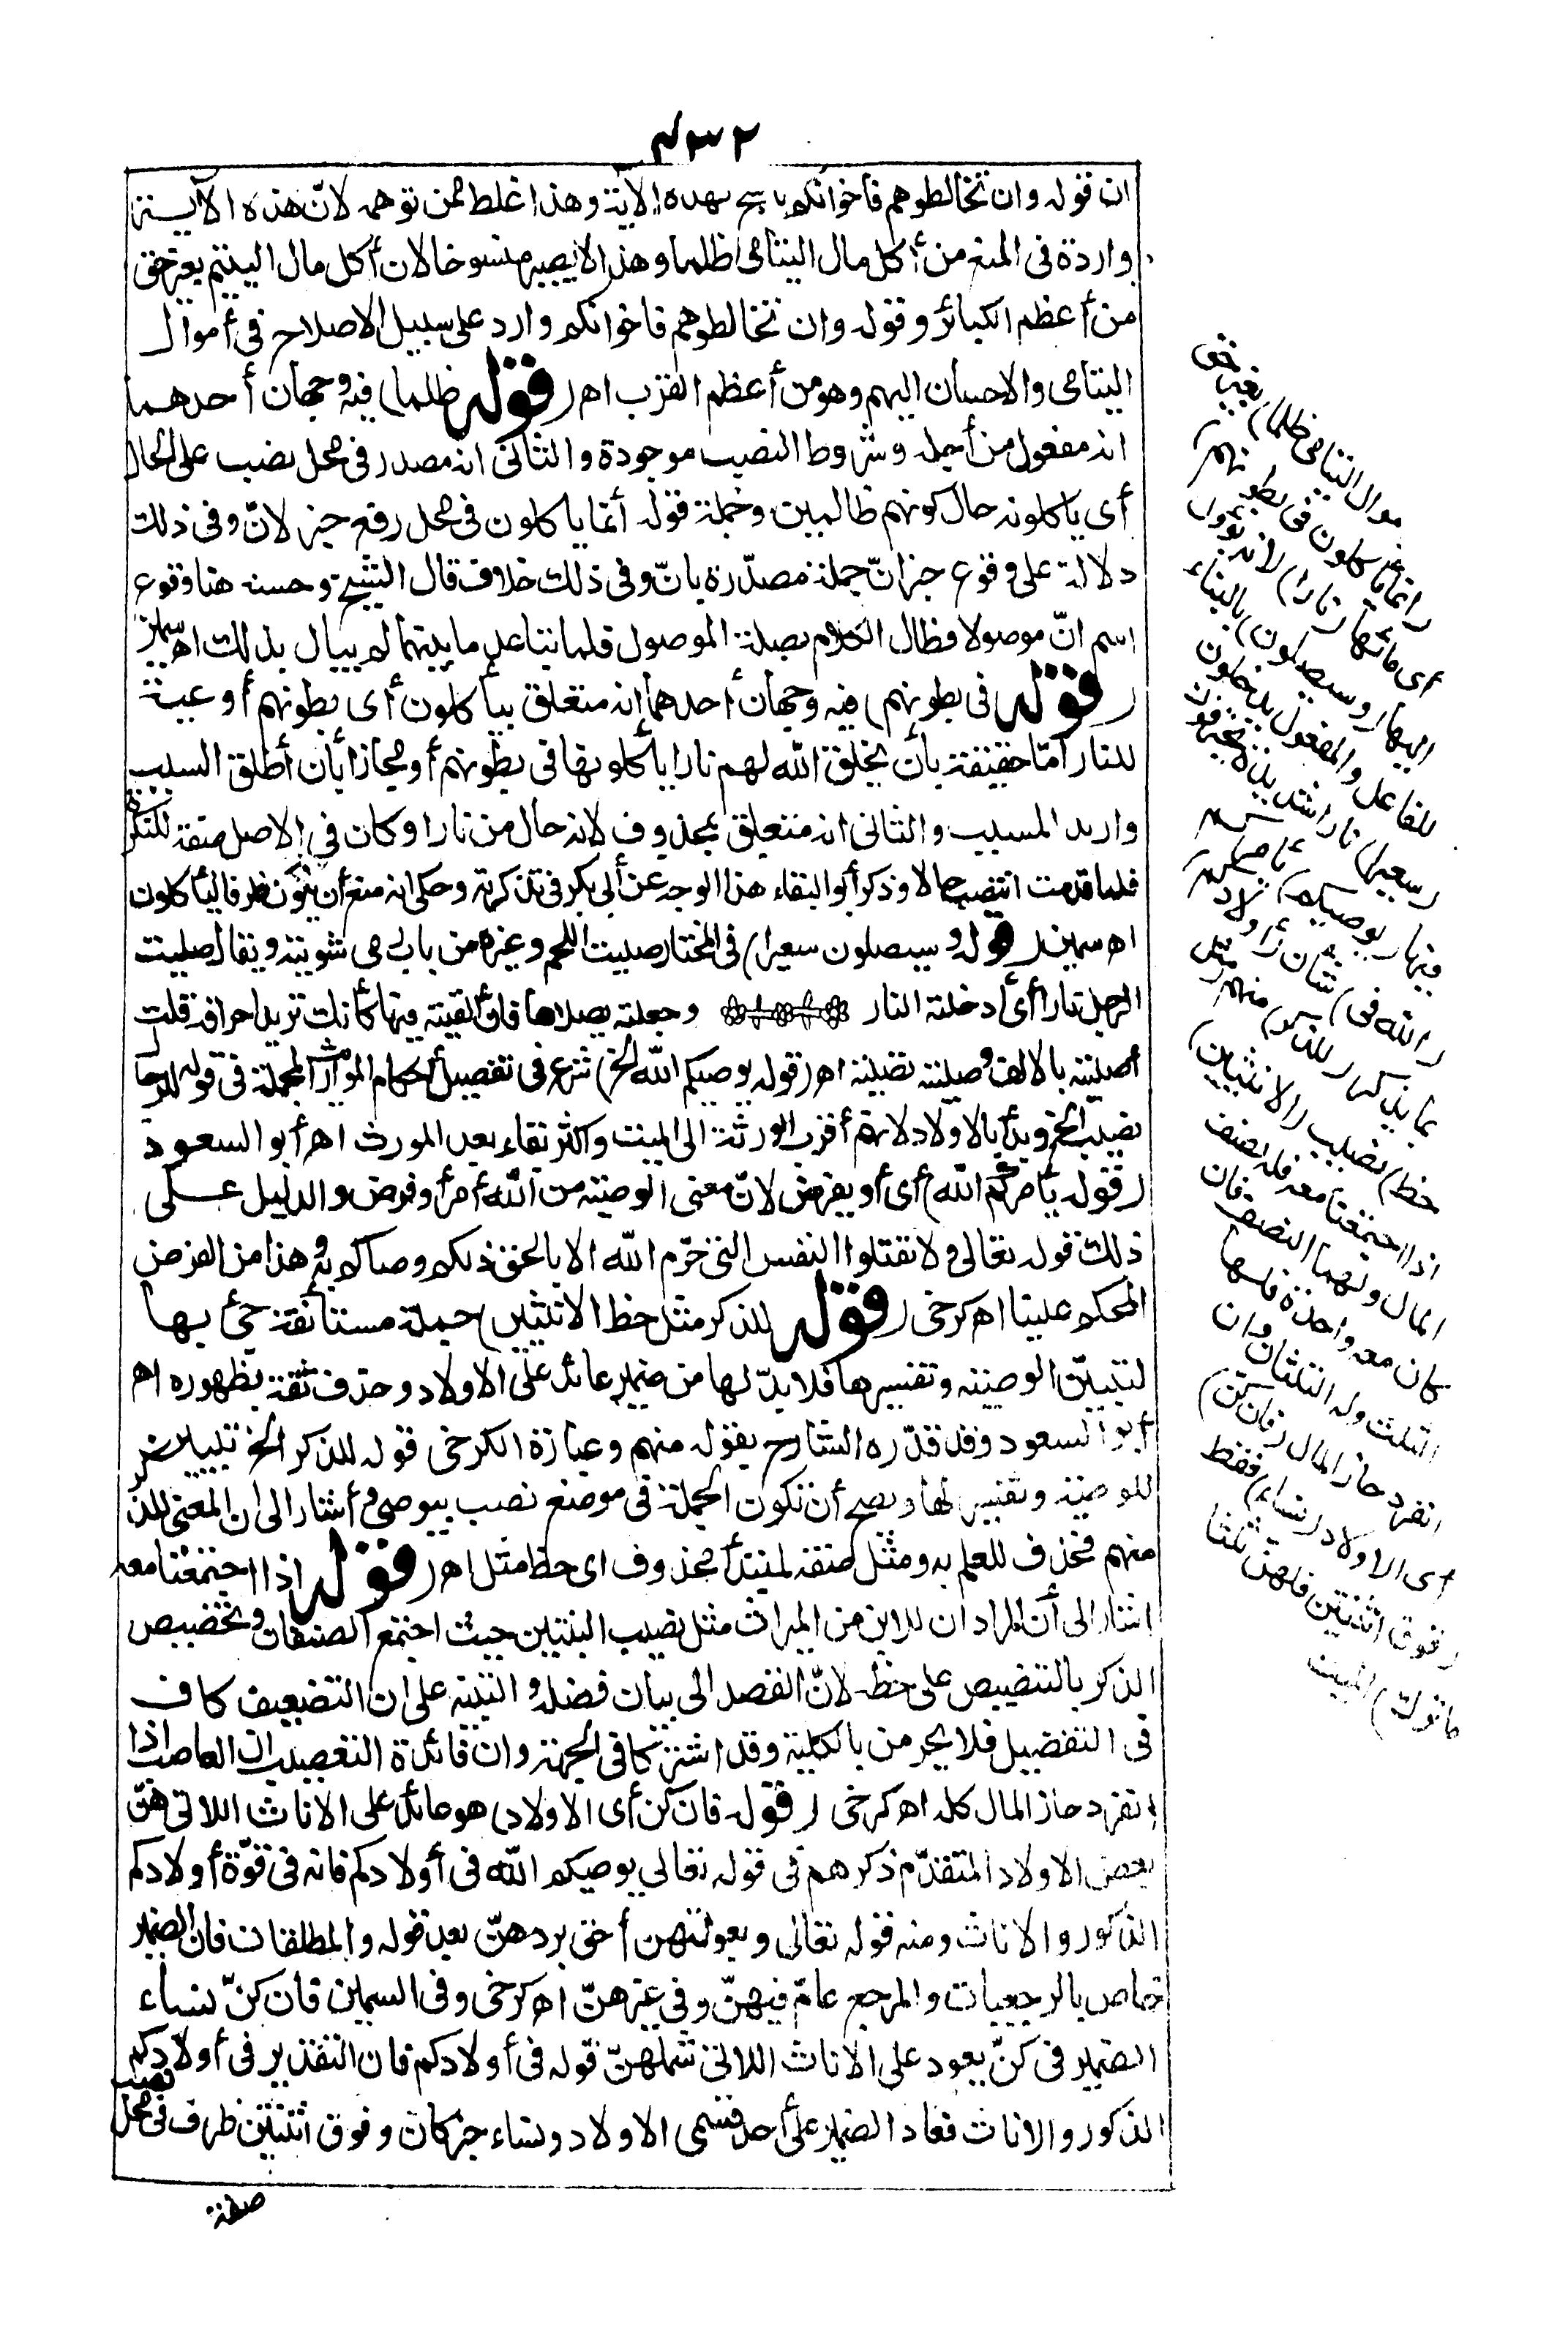 ٤٣٢
ان قوله وان تخالطوهم فاخوانكم ناسخ لهذه الآية وهذا غلط ممن توهمه لانّ هذه الآية
واردة فى المنع من أكل مال اليتامى ظلما وهذا لا يصير منسوخا لان أكل مال اليتيم بغير حق
من أعظم الكبائر وقوله وان تخالطوهم فاخوانكم وارد على سبيل الاصلاح فى أموال
اليتامى والاحسان اليهم وهو من أعظم القرب اهـ (قوله ظلما) فيه وجهان أحدهما
انه مفعول من أجله وشروط النصب موجودة والثانى انه مصدر فى محل نصب على الحال
أى ياكلونه حال كونهم ظالمين وجملة قوله انما ياكلون فى محل رفع خبر لانّ وفى ذلك
دلالة على وقوع خبر انّ جملة مصدّرة بانّ وفى ذلك خلاف قال الشيخ وحسنه هنا وقوع
اسم انّ موصولا فطال الكلام بصلة الموصول فلما تباعد ما بينهما لم يبال بذلك اهـ سمين
(قوله فى بطونهم) فيه وجهان أحدهما انه متعلق بيأكلون أى بطونهم أوعية
للنار امّا حقيقة بأن يخلق الله لهم نارا يأكلونها فى بطونهم أو مجازا بأن أطلق السبب
واريد المسبب والثانى انه متعلق بمحذوف لانه حال من نارا وكان فى الاصل صفة للنكرة
فلما قدمت انتصب حالا وذكر أبو البقاء هذا الوجه عن أبى بكر فى تذكرته وحكى انه منع أن يكون ظرفا ليأكلون
اهـ سمين (قوله وسيصلون سعيرا) فى المختار صليت اللحم وغيره من باب رمى شويته ويقال صليت
الرجل نارا أى أدخلته النار وجعلته يصلاها فان ألقيته فيها كأنك تريد احراقه قلت
أصليته بالالف وصليته تصلية اهـ (قوله يوصيكم الله الخ) شرع فى تفصيل أحكام المواريث المجملة فى قوله للرجال
نصيب الخ وبدأ بالاولاد لانهم أقرب الورثة الى الميت وأكثر بقاء بعد المورث اهـ أبو السعود
(قوله يأمركم الله) أى أو يفرض لانّ معنى الوصية من الله أمر أو فرض والدليل على
ذلك قوله تعالى ولا تقتلوا النفس التى حرّم الله الا بالحق ذلكم وصاكم به وهذا من الفرض
المحكم علينا اهـ كرخى (قوله للذكر مثل حظ الانثيين) جملة مستأنفة جئ بها
لتبيين الوصية وتفسيرها فلا بدّ لها من ضمير عائد على الاولاد وحذف ثقة بظهوره اهـ
أبو السعود وقد قدّره الشارح بقوله منهم وعبارة الكرخى قوله للذكر الخ تبيين
للوصية وتفسير لها ويصح أن تكون الجملة فى موضع نصب بيوصى وأشار الى ان المعنى للذكر
منهم فحذف للعلم به ومثل صفة لمبتدأ محذوف اى حظ مثل اهـ (قوله اذا اجتمعتا معه
اشار الى أن المراد ان للابن من الميراث مثل نصيب البنتين حيث اجتمع الصنفان وتخصيص
الذكر بالتنصيص على حظه لانّ القصد الى بيان فضله والتنبيه على ان التضعيف كاف
فى التفضيل فلا يحرمن بالكلية وقد اشتركا فى الجهة وان فائدة التعصيب ان العاصب اذا
انفرد حاز المال كله اهـ كرخى (قوله فان كن أى الاولاد) هو عائد على الاناث اللاتى هنّ
بعض الاولاد المتقدّم ذكرهم فى قوله تعالى يوصيكم الله فى أولادكم فانه فى قوّة أولادكم
الذكور والاناث ومنه قوله تعالى وبعولتهن أحق بردهنّ بعد قوله والمطلقات فان الضمير
خاص بالرجعيات والمرجع عامّ فيهنّ وفى غيرهنّ اهـ كرخى وفى السمين فان كنّ نساء
الضمير فى كنّ يعود على الاناث اللاتى شملهنّ قوله فى أولادكم فان التقدير فى أولادكم
الذكور والاناث فعاد الضمير على أحد قسمى الاولاد ونساء خبر كان وفوق اثنتين ظرف فى محل نصب
صفة
موال اليتامى ظلما) بغير حق
(انما يأكلون فى بطونهم)
أى ملأها (نارا) لانه يؤول
اليها (وسيصلون) بالبناء
للفاعل والمفعول يدخلون
(سعيرا) نارا شديدة يحترقون
فيها (يوصيكم) يأمركم
(الله فى) شأن (أولادكم)
بما يذكر (للذكر) منهم (مثل
حظ) نصيب (الانثيين)
اذا اجتمعتا معه فله نصف
المال ولهما النصف فان
كان معه واحدة فلها
الثلث وله الثلثان وان
انفرد حاز المال (فان كن)
أى الاولاد (نساء) فقط
(فوق اثنتين فلهن ثلثا
ما ترك) الميت